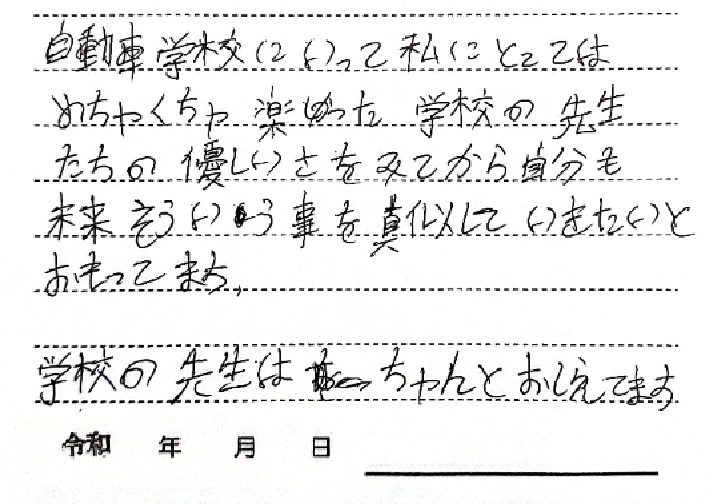 自動車学校にいって私にとっては
めちゃくちゃ楽しかった 学校の先生
たちの優しいさをみてから自分も
未来そういう事を真似していきたいと
おもってます。
学校の先生はちゃんとおしえてます
令和 年 月 日